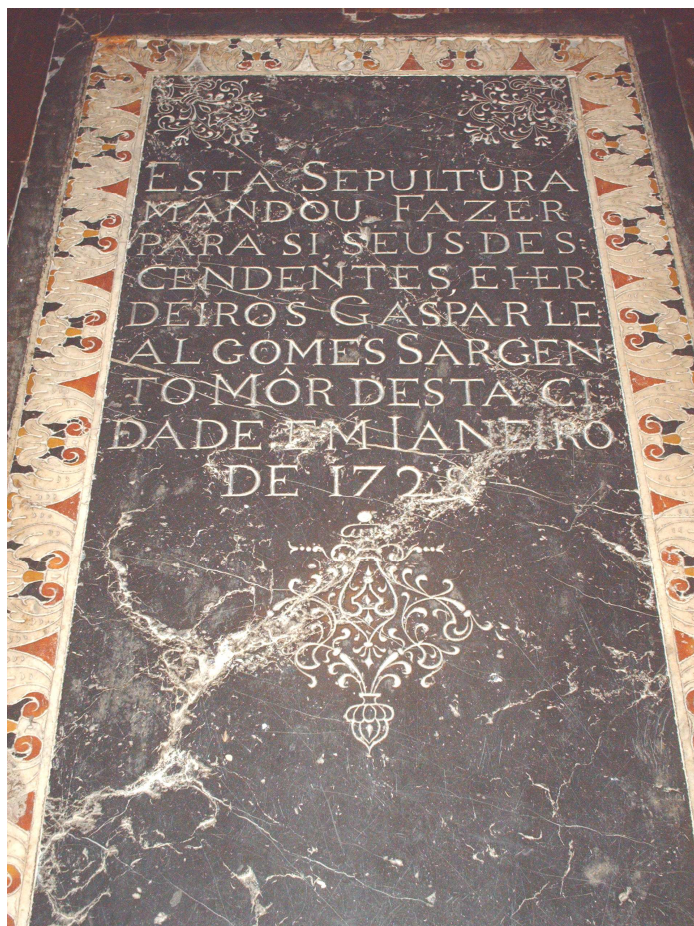 ESTA SEPULTURA
MANDOU FAZER
PARA SI SEUS DES:
CENDENTES, E HER
DEIROS GASPAR LE:
AL GOMES SARGEN
TO MÔR DESTA CI:
DADE EM IANEIRO
DE